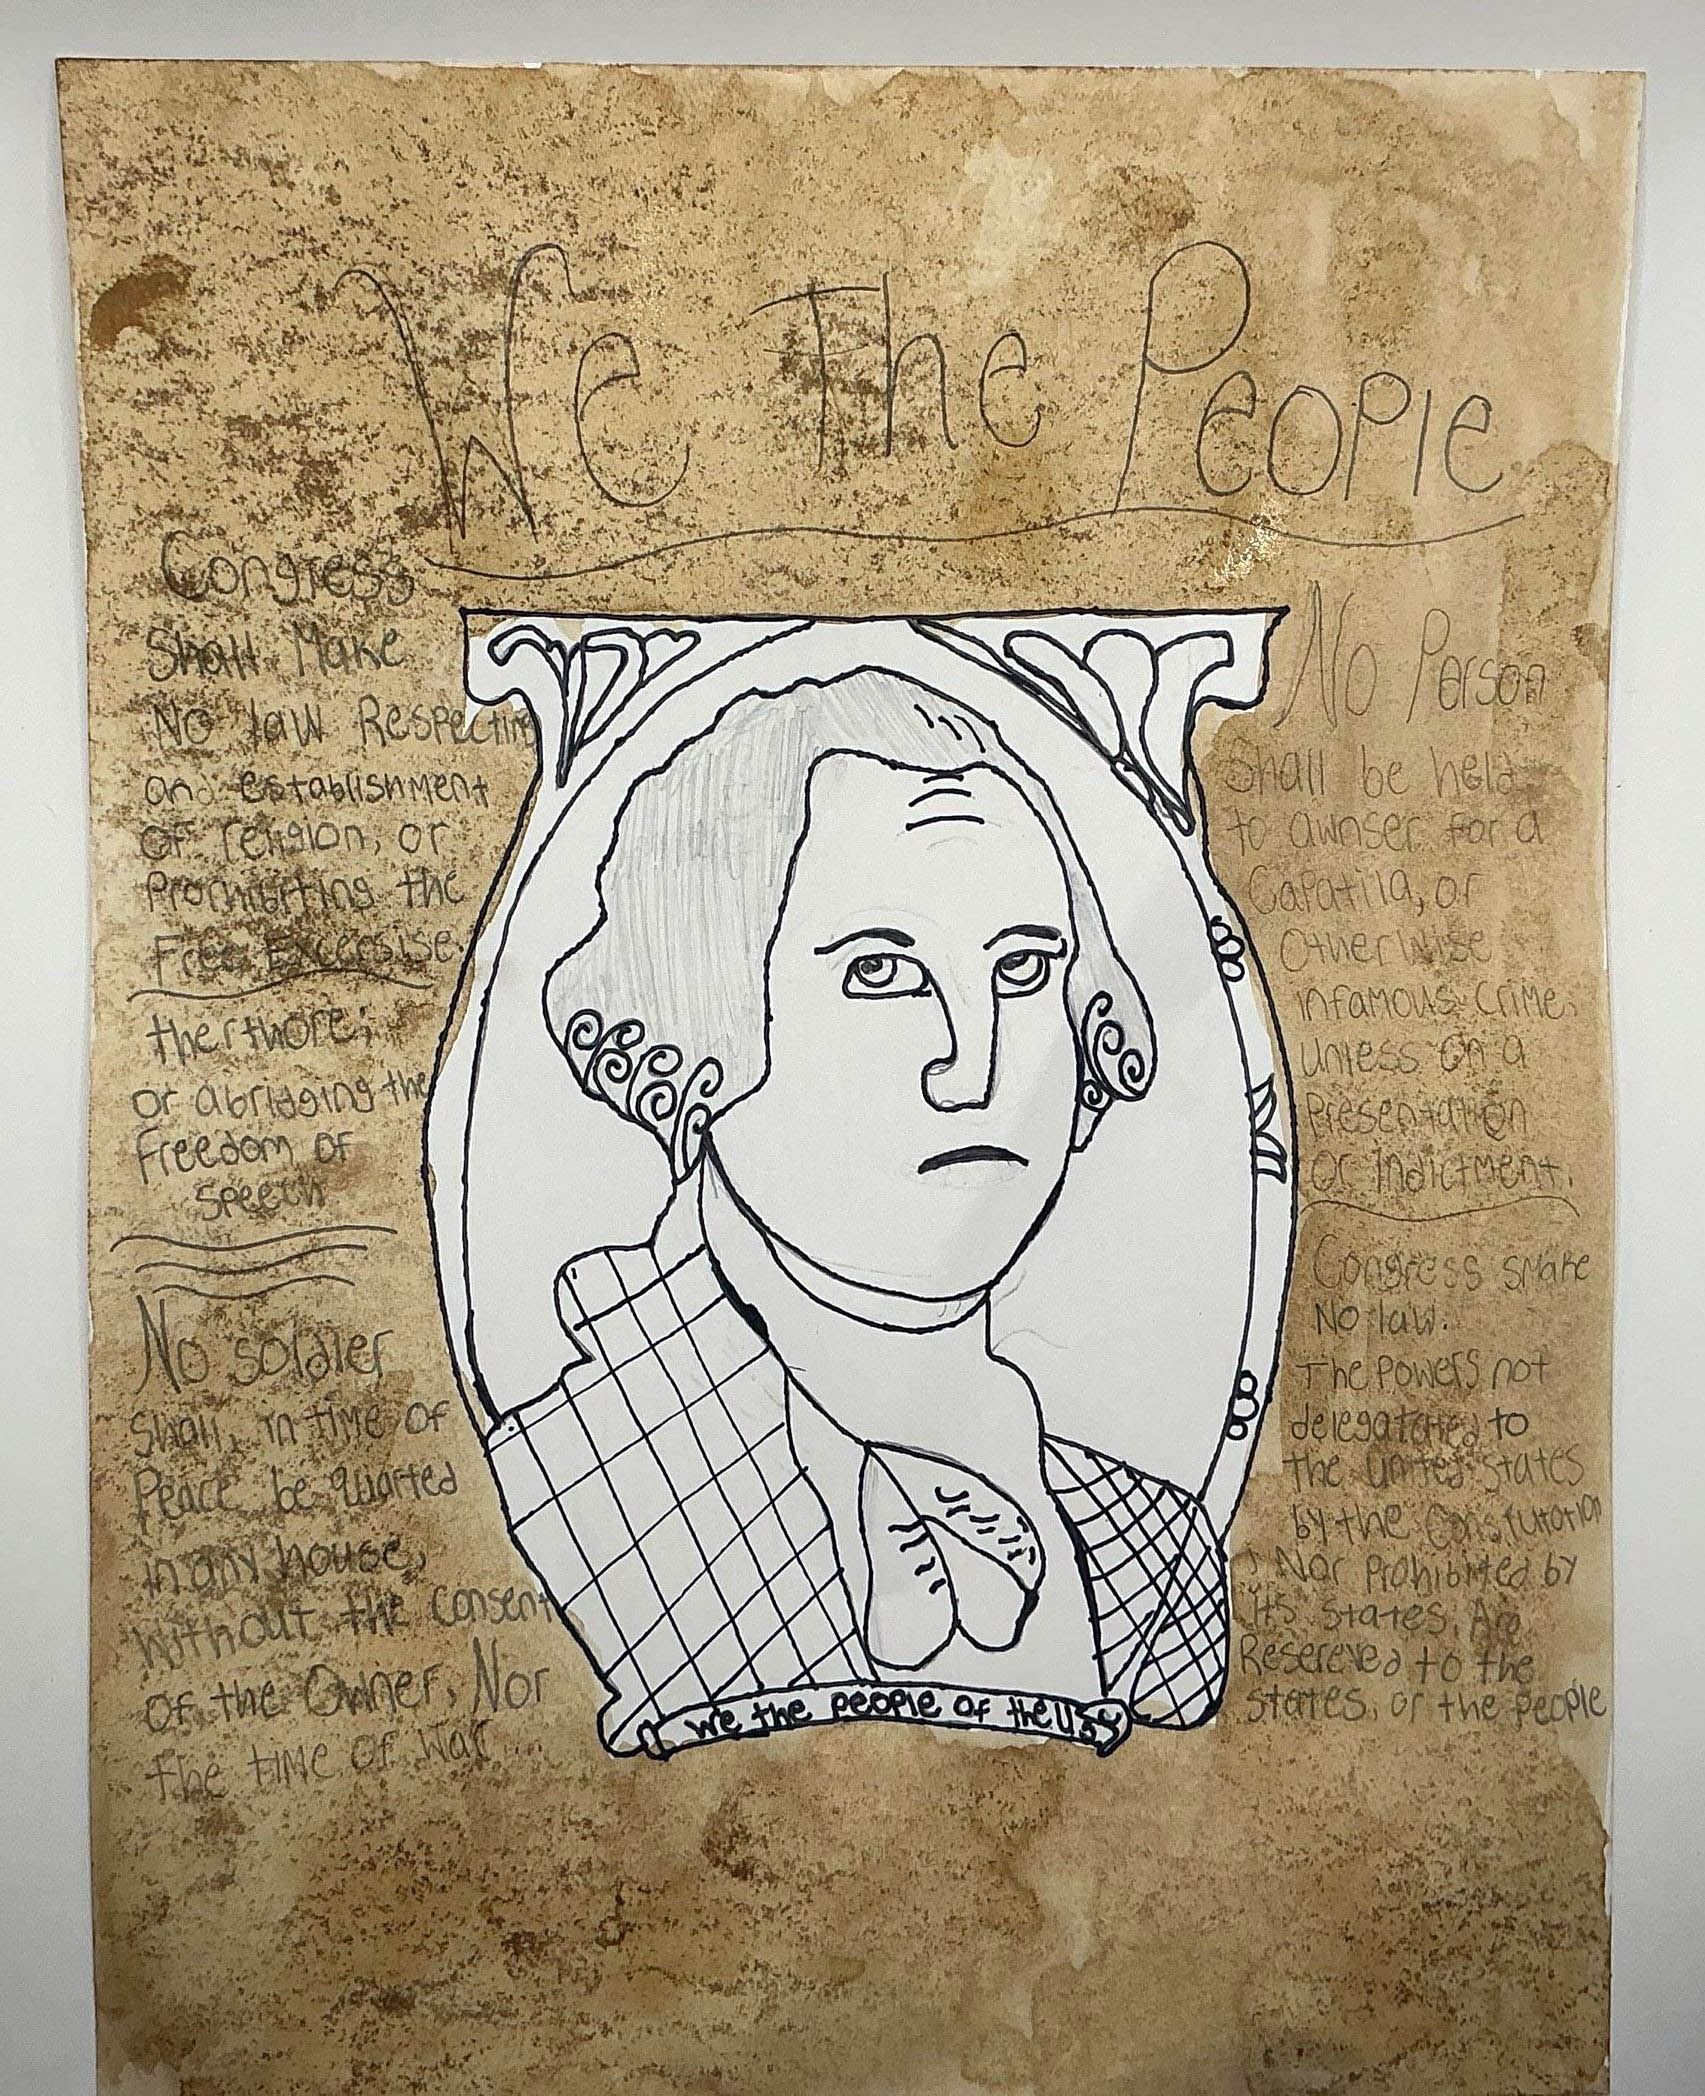 We The People
Congress
Shall Make
No law Respecting
and establishment
of religion, or
Prohibiting the
Free Excersise
therthore;
or abridging the
freedom of
speech
No soldier
shall, in time of
Peace be quarted
in any house,
without the consent
of the Owner, Nor
the time of war
No Person
Shall be held
to awnser for a
Capatila, or
Otherwise
infamous crime,
unless on a
Presentation
or indictment.
Congress smake
No law.
The Powers not
delegateted to
the united states
by the Constutution
, Nor prohibited by
its states, Are
Resereved to the
states, or the people
we the people of the US